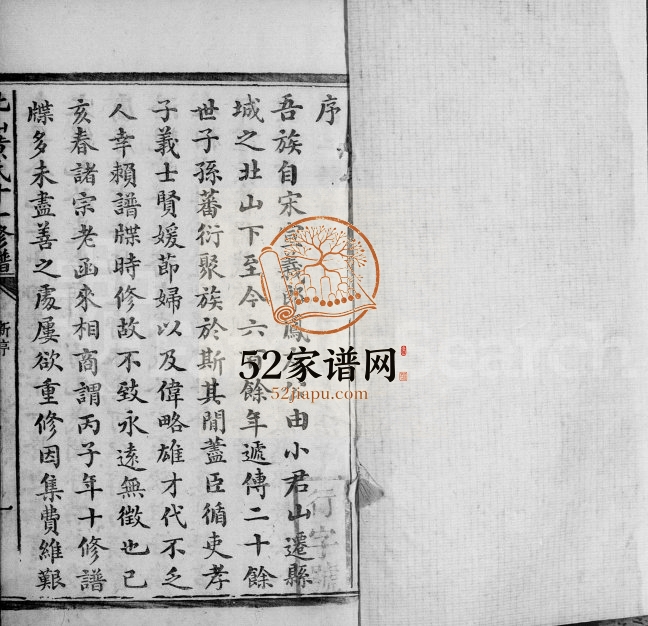 序
吾族自宋宣義郎由小君山遷縣
城之北山下至今六百餘年遞傳二十餘
世子孫蕃衍聚族於斯其閒蓋臣循吏孝
子義士賢媛節婦以及偉略雄才代不乏
人幸賴譜牒時修故不致永遠無徵也已
亥春諸宗老函來相商謂丙子年十修譜
牒多未盡善之處屢欲重修因集費維艱
北山黃氏十一修譜
新序
一
行字號
52家谱网
52jiapu.com